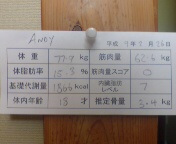 ANDY 平成 年 月 日
体重 77.7 kg 筋肉量 62.6 kg
体脂肪率 % 筋肉量スコア 0
基礎代謝量 kcal 内臓脂肪レベル 7
体内年齢 18 才 推定骨量 3.4 kg